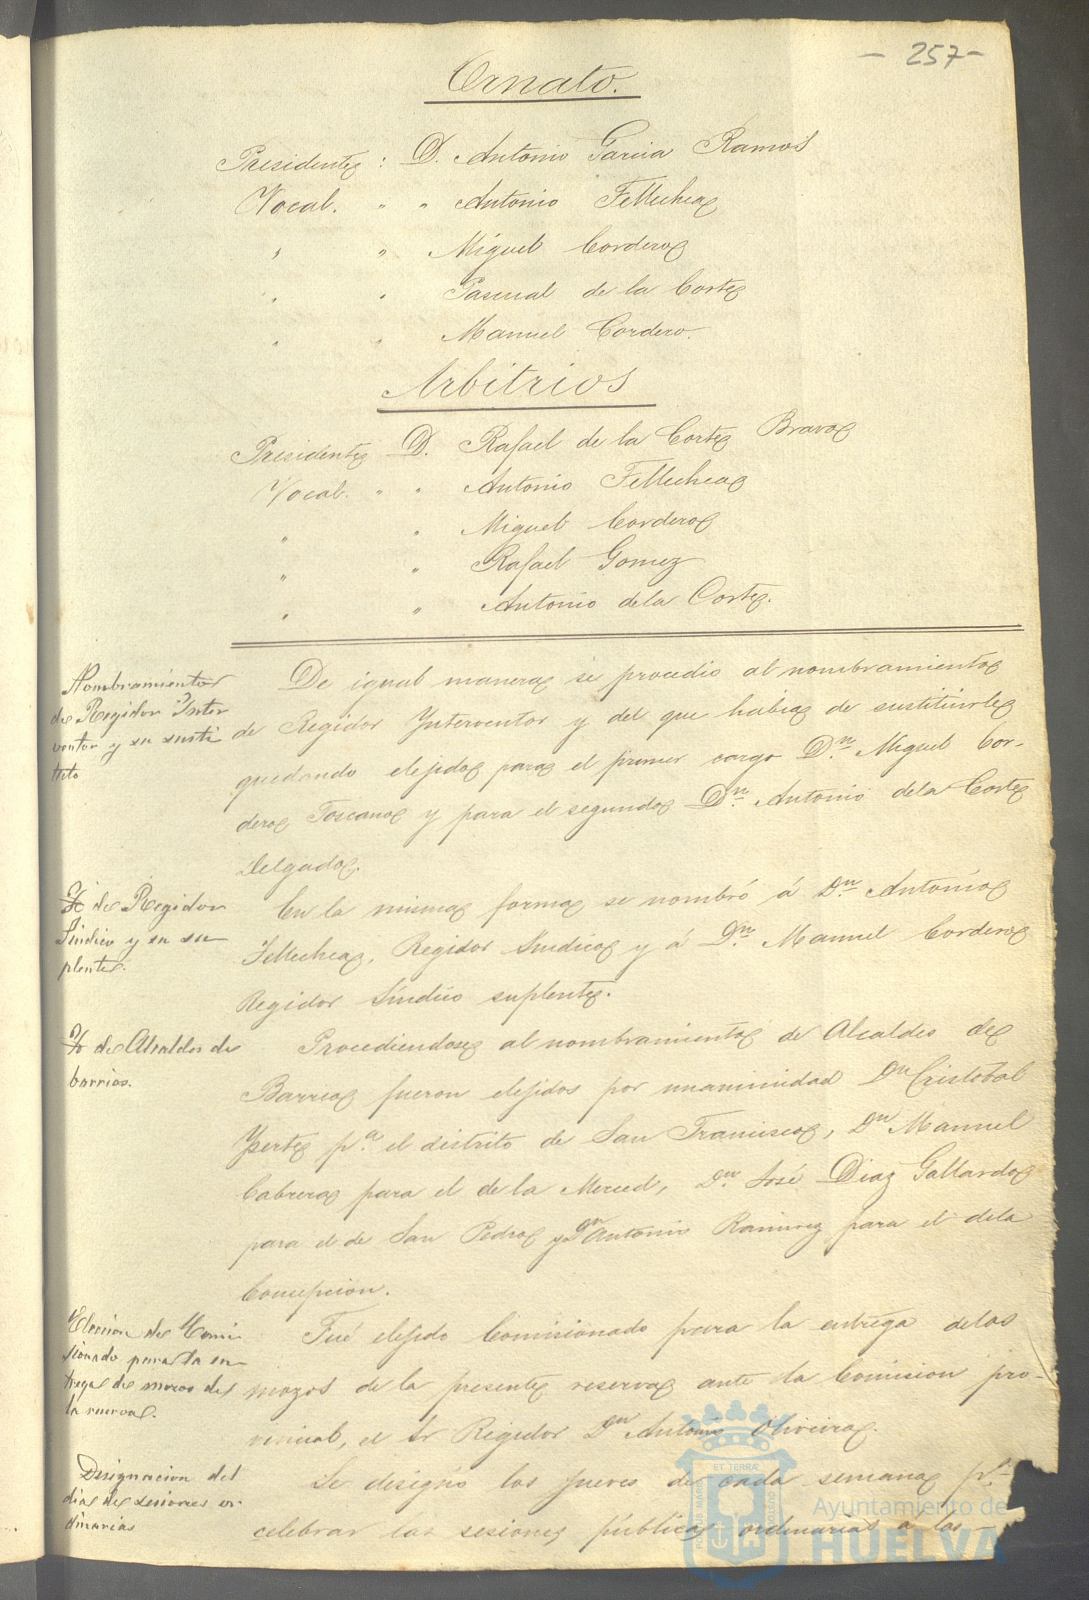 - 257 -
Ornato.
Presidente : D. Antonio Garcia Ramos
Vocal. " " Antonio Fellechea
" " Miguel Cordero
" " Pascual de la Corte
" " Manuel Cordero.
Arbitrios
Presidente D. Rafael de la Corte Bravo
Vocal. " " Antonio Fellechea
" " Miguel Cordero
" " Rafael Gomez
" " Antonio de la Corte.
Nombramiento
de Regidor Inter
ventor y su susti
tuto
De igual manera se procedio al nombramiento
de Regidor Ynterventor y del que habia de sustituirle
quedando elejido para el primer cargo Dn. Miguel Cor-
dero Toscano y para el segundo Dn. Antonio de la Corte
Delgado.
de Regidor
Sindico y su su
plente.
En la misma forma se nombró á Dn Antonio
Fellechea, Regidor Sindico y á Dn. Manuel Cordero
Regidor Síndico suplente.
de Alcaldes de
barrios.
Procediendose al nombramiento de Alcaldes de
Barrio fueron elejidos por unanimidad Dn Cristobal
pa. el distrito de San Francisco, Dn Manuel
Cabrera para el de la Merced, Dn. José Diaz Gallardo
para el de San Pedro y Dn Antonio Ramirez para el dela
Concepcion.
Eleccion de Comi
sionado para la en-
trega de mozos de
la reserva.
Fué elejido Comisionado para la entrega delos
mozos de la presente reserva ante la Comision pro-
vincial, el Sr Regidor Dn Antonio Oliveira.
Designacion del
dia de sesiones or
dinarias
Se designó los jueves de cada semana pa.
celebrar las sesiones públicas ordinarias a las
Ayuntamiento de
HUELVA